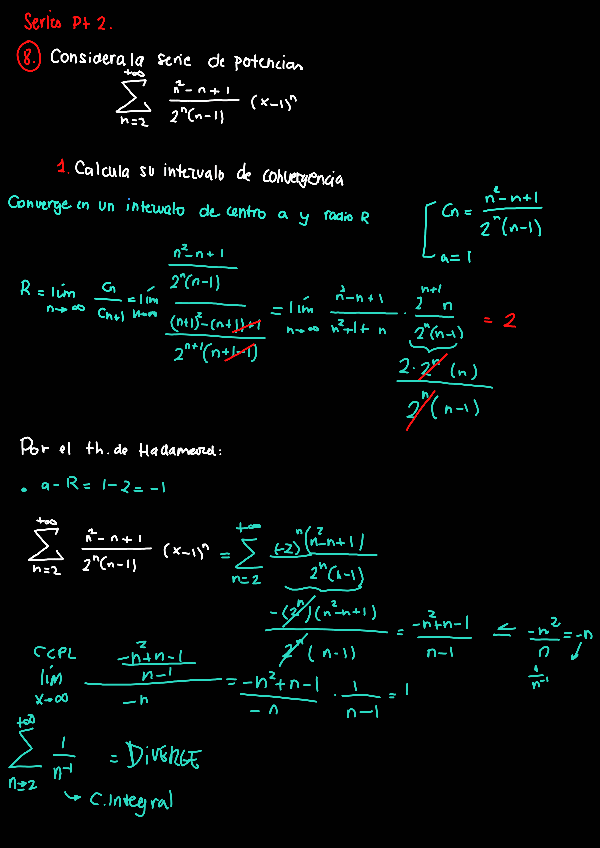 Series Pt 2.
8. Considera la serie de potencias
+∞ ∑ n=2 (n²-n+1)/(2ⁿ(n-1)) (x-1)ⁿ
1. Calcula su intervalo de convergencia
Converge en un intervalo de centro a y radio R
Cn = (n²-n+1)/(2ⁿ(n-1))
a=1
R = lím n→∞ Cn/Cn+1 = lím n→∞ ((n²-n+1)/(2ⁿ(n-1)))/(((n+1)²-(n+1)+1)/(2ⁿ⁺¹(n+1-1))) = lím n→∞ (n²-n+1)/(n²+1+n) · (2ⁿ⁺¹ n)/(2ⁿ(n-1)) = 2
(2·2ⁿ(n))/(2ⁿ(n-1))
Por el th. de Hadamard:
• a-R = 1-2 = -1
+∞ ∑ n=2 (n²-n+1)/(2ⁿ(n-1)) (x-1)ⁿ = +∞ ∑ n=2 ((-2)ⁿ(n²-n+1))/(2ⁿ(n-1))
(-(2ⁿ)(n²-n+1))/(2ⁿ(n-1)) = (-n²+n-1)/(n-1) ≤ -n²/n = -n
1/n-1
CCPL
lím x→∞ ((-n²+n-1)/(n-1))/(-n) = (-n²+n-1)/(-n) · 1/(n-1) = 1
+∞ ∑ n=2 1/n-1 = DIVERGE
↳ C. Integral